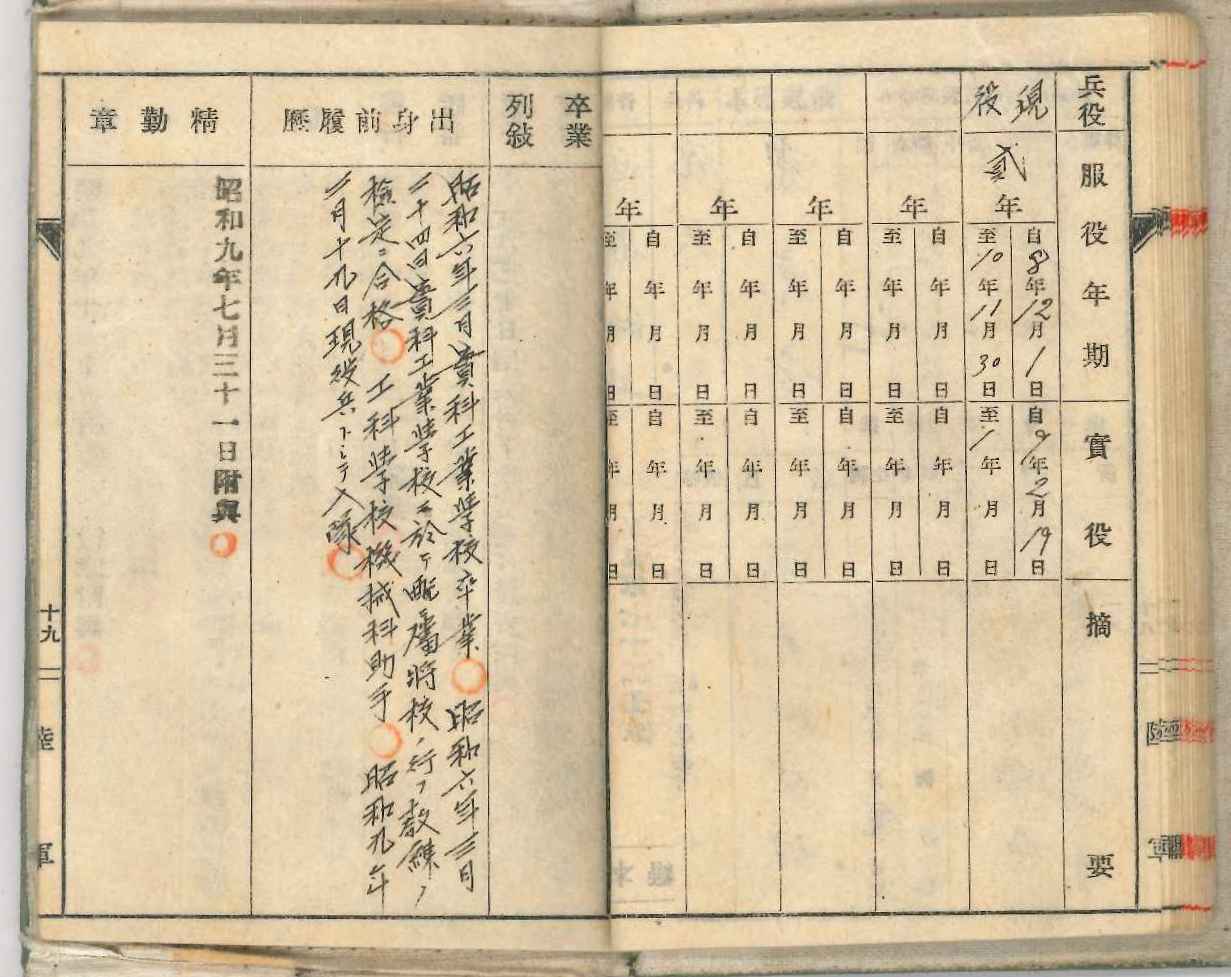 兵役
服役年期
實役
摘要
現役
貳年
自8年12月1日
至10年11月30日
自9年2月19日
至 年 月 日
年
自 年 月 日
至 年 月 日
自 年 月 日
至 年 月 日
年
自 年 月 日
至 年 月 日
自 年 月 日
至 年 月 日
年
自 年 月 日
至 年 月 日
自 年 月 日
至 年 月 日
年
自 年 月 日
至 年 月 日
自 年 月 日
至 年 月 日
卒業
列敍
出身前履歷
昭和六年三月實科工業學校卒業 昭和六年三月
二十四日實科工業學校ニ於テ配屬將校ノ行フ教練ノ
檢定ニ合格 工科學校機械科助手 昭和九年
二月十九日現役兵トシテ入隊
精勤章
昭和九年七月三十一日附與
十九
陸軍